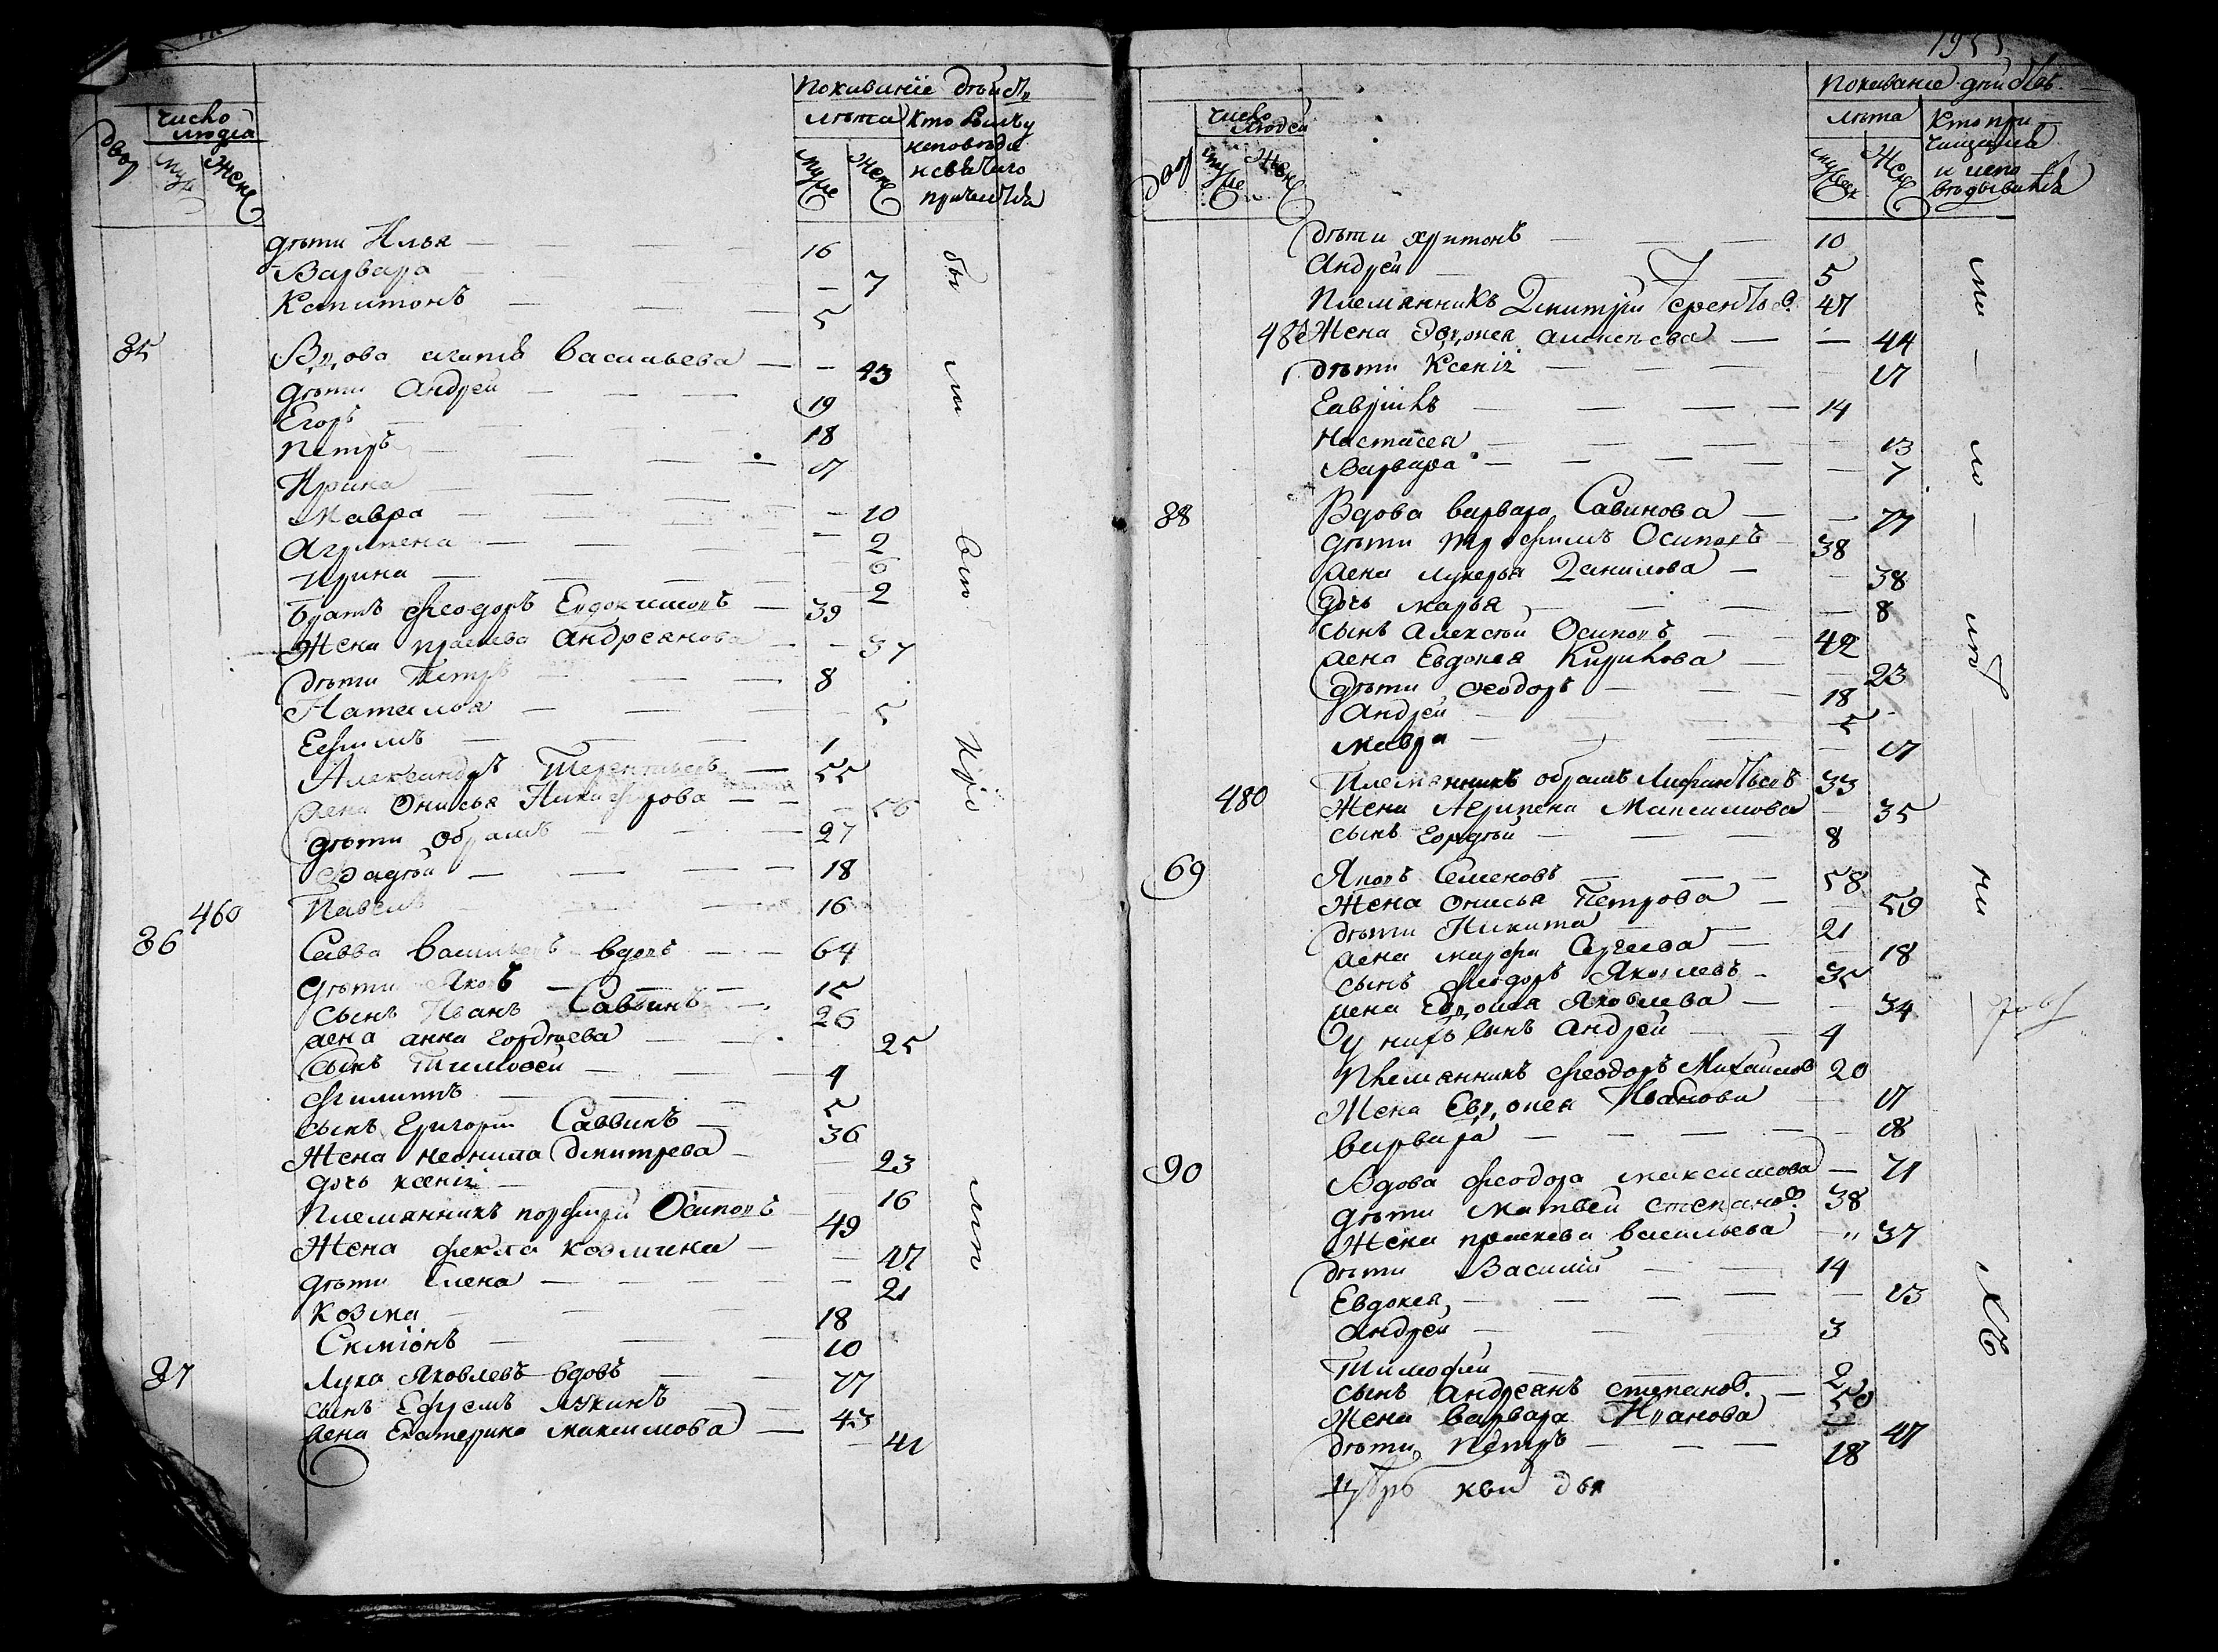 Показание дѣйст
Число людей
лѣта
Кто былъ у исповѣди и святаго причастія
двор
муж
жене
муже
жене
дѣти Илья — 16
Варвара — 7
Капитонъ — 5
85 Вдова Агапія Васильева — 43
дѣти Андрей — 19
Егоръ — 18
Петръ — 17
Ирина
Мавра — 10
Агрипена — 2
Ирина — 6
2
братъ Феодоръ Евдокимовъ — 39
Жена Праскева Андреянова — 37
дѣти Петръ — 8
Наталья — 5
Ефимъ — 1
Александръ Терентьевъ — 55
жена Онисья Никифорова — 56
дѣти Абрамъ — 27
Фадѣй — 18
460 Павелъ — 16
86 Савва Васильевъ вдовъ — 64
дѣти Яковъ — 15
сынъ Иванъ Саввинъ — 26
жена Анна Гордѣева — 25
сынъ Тимофей — 4
Филиппъ — 5
сынъ Григорій Саввинъ — 36
Жена Неонила Дмитрева — 23
дочь Ксенія — 16
Племянникъ Порфирій Осиповъ — 49
Жена Фекла Козмина — 47
дѣти Елена — 21
Козма — 18
Симіонъ — 10
87 Лука Яковлевъ вдовъ — 77
сынъ Ефремъ Лукинъ — 43
жена Екатерина Максимова — 41
бы
ли
Показание дѣйств
Число людей
лѣта
Кто причащался и исповѣдывался
двор
муже
жене
муже
жен
дѣти Харитонъ — 10
Андрей — 5
Племянникъ Дмитрій Терентьев — 47
Жена Евдокея Алексѣева — 44
дѣти Ксенія — 17
Гаврилъ — 14
Настасея — 13
Варвара — 7
88 Вдова Варвара Савинова — 77
дѣти Трофимъ Осиповъ — 38
жена Лукерья Данилова — 38
дочь Марья — 8
сынъ Алексѣй Осиповъ — 42
жена Евдокея Кирилова — 23
дѣти Феодоръ — 18
Андрей — 5
Мавра — 17
Племянникъ Абрамъ — 33
480 Жена Агрипена Максимова — 35
сынъ Гордѣй — 8
69 Яковъ Семеновъ — 58
Жена Онисья Петрова — 59
дѣти Никита — 21
жена Марфа Сергеева — 18
сынъ Феодоръ Яковлевъ — 35
жена Евдокея Яковлева — 34
у нихъ сынъ Андрей — 4
Племянникъ Феодоръ Михайлов — 20
Жена Евдокея Иванова — 17
Варвара — 18
90 Вдова Феодора Максимова — 71
дѣти Матвей Степанов — 38
Жена Праскева Васильева — 37
дѣти Василій — 14
Евдокея — 13
Андрей — 3
Тимофей — 2
сынъ Андреянъ Степанов — 50
Жена Варвара Иванова — 47
дѣти Петръ — 18